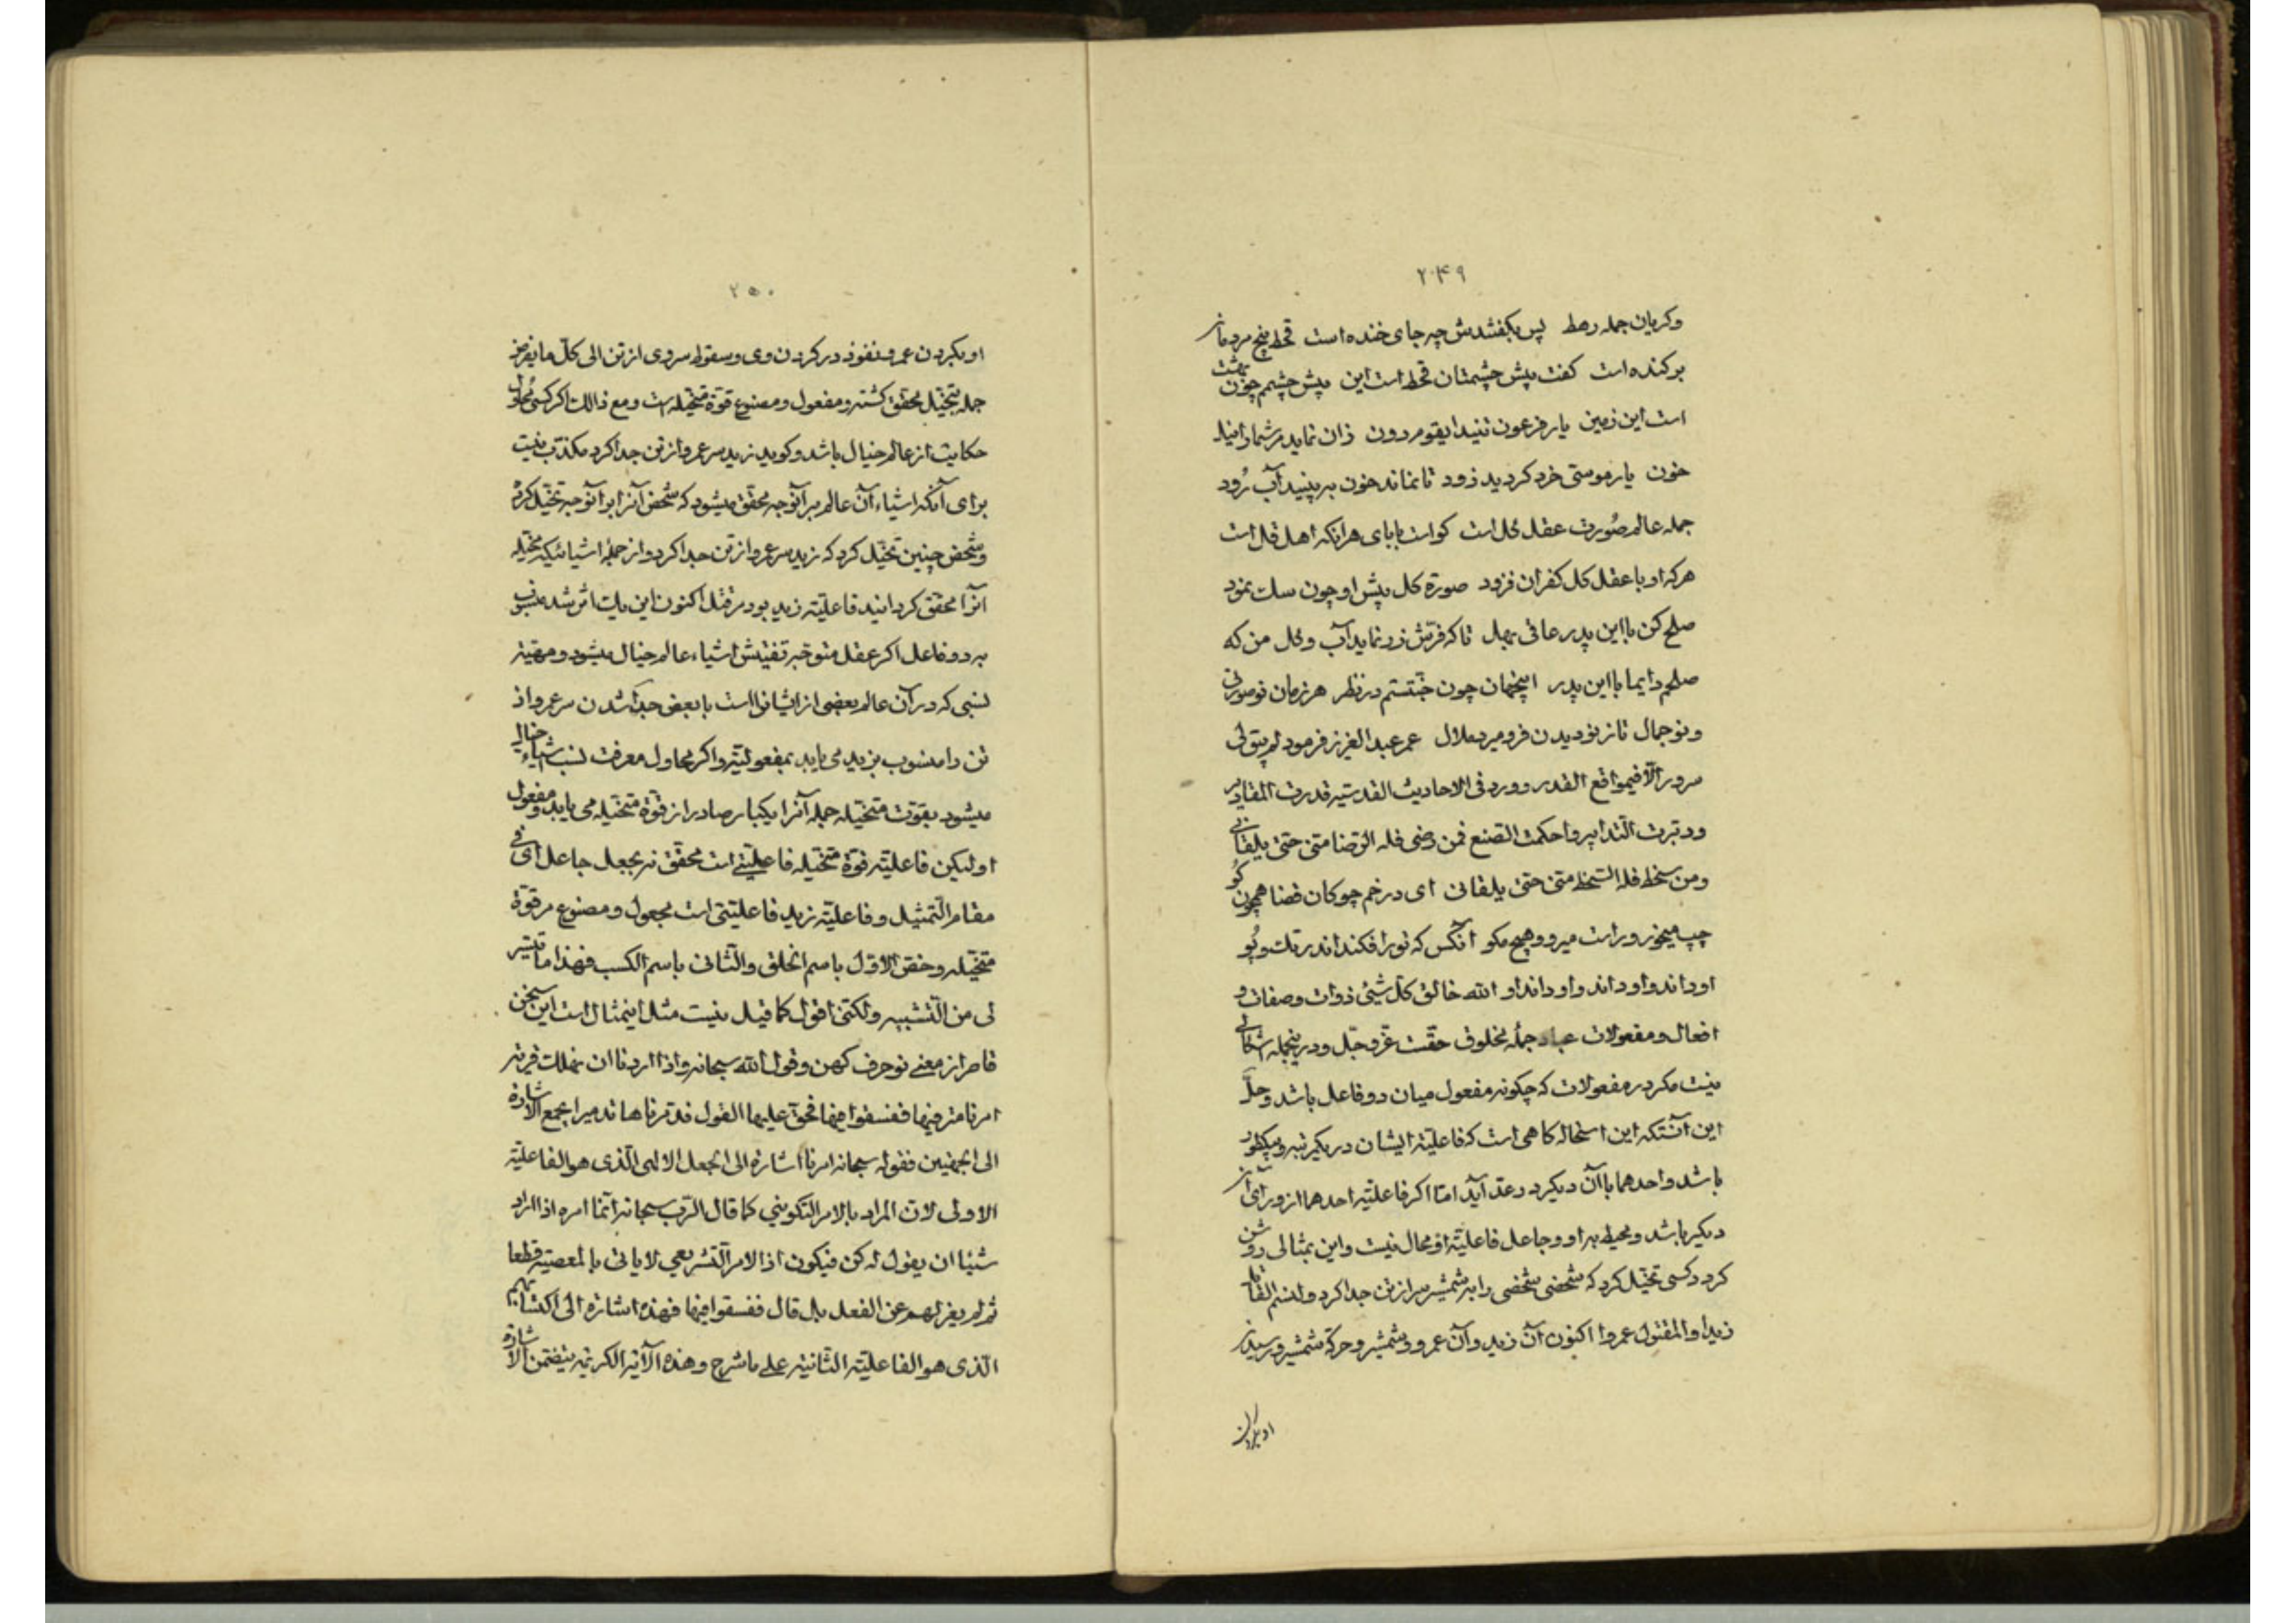 ۲۴۹
وكریان جمله رهط پس بگفتندش چه جای خنده است قحط بیخ مردمان
بركنده است كفت پیش چشمتان قحط است این پیش چشمم چون بهشت
است این زمین یار فرعون تنید ایقوم دون زان نماید مر شما را نیل
خون یار موسی خرد كردید زود تا نماند خون به بینید آب رُود
جمله عالم صُورت عقل كل است كو است بابای هر انكه اهل قل است
هركه او با عقل كل كفران فزود صورة كل پیش او چون سك نمود
صلح كن با این پدر عاقی بهل تا كه فرش زر نماید آب و كل من كه
صلحم دایما با این پدر اینجهان چون جنتستم در نظر هر زمان نو صورتی
و نو جمال تا ز نو دیدن فرو میرد ملال عمر عبد العزیز فرمود لم یبق لی
سرور الّا فی مواقع القدر و ورد فی الاحادیث القدسیّه قدرت المقادیر
ودبّرت التّدابیر واحكمت الصّنع فمن رضی فله الرّضا منّی حتی یلقانی
ومن سخط فله السّخط منّی حتی یلقانی ای در خم چوكان قضا همچون كُو
چپ میخور و راست میرو و هیچ مكو انكس كه تو را فكند اندر تك و پُو
او داند و او داند و او داند او الله خالق كلّ شیئ ذوات و صفات و
افعال و مفعولات عباد جمله مخلوق حقّست عزّ و جلّ و در اینجمله اشكالی
نیست مكر در مفعولات كه چكونه مفعول میان دو فاعل باشد و حلّ
این آنستكه این استحاله كاهی است كه فاعلیّة ایشان در یكمرتبه و یكطور
باشد و احدهما با آن دیكر در عدّ آید امّا اكر فاعلیّة احدهما از ورای آن
دیكر باشد و محیط به او و جاعل فاعلیّة او محال نیست و این بمثالی روشن
كردد كسی تخیّل كرد كه شخصی شخصی را به شمشیر سر از تن جدا كرد ولنسمّ القاتل
زیدا والمقتول عمروا اكنون آن زید و آن عمرو و شمشیر و حركة شمشیر و رسیدن
او بكردن
۲۵۰
او بكردن عمرو و نفوذ در كردن وی و سقوط سر وی از تن الی كلّ ما یفرض
جمله بتخیّل محقّق كشته و مفعول و مصنوع قوّة متخیّله است و مع ذالك اكر كسی مُحاول
حكایت از عالم خیال باشد و كوید زید سر عمرو از تن جدا كرد مكذب نیست
برای آنكه اشیاء آن عالم بر آنوجه محقّق میشود كه شخص آنرا بر آنوجه تخیّل كرده
و شخص چنین تخیّل كرد كه زید سر عمرو از تن جدا كرد و از جملهٔ اشیائیكه تخیله
آنرا محقّق كردانید فاعلیّة زید بود مر قتل اكنون این یك اثر شد منسوب
به دو فاعل اكر عقل متوجّه تفتیش اشیاء عالم خیال میشود و مهیّة
نسبی كه در آن عالم بعضی از ایشانرا است با بعض جدا شدن سر عمرو از
تن را منسوب بزید می یابد بمفعولیّة و اكر محاول معرفت نسب اشیاء خیالی
میشود بقوّت متخیّله جمله آنرا یكبار صادر از قوّة متخیّله می یابد و مفعول
او لیكن فاعلیّة قوّة متخیّله فاعلیّتی است محقّق نه بجعل جاعل ای فی
مقام التّمثیل و فاعلیّة زید فاعلیّتی است مجعول و مصنوع مر قوّة
متخیّله و خصّ الاوّل باسم الخلق والثّانی باسم الكسب فهذا ما تیسّر
لی من التّشبیه ولكنّی اقول كما قیل نیست مثل اینمثال است این سخن
قاصر از معنی نو حرف كهن وقول الله سبحانه واذا اردنا ان نهلك قریة
امرنا مترفیها ففسقوا فیها فحقّ علیها القول فدمّرناها تدمیرا یجمع الاشارة
الی الجهتین فقوله سبحانه امرنا اشارة الی الجعل الالهی الّذی هو الفاعلیّة
الاولی لانّ المراد بالامر التّكوینی كما قال الرّب سبحانه انّما امره اذا اراد
شیئا ان یقول له كن فیكون اذ الامر التّشریعی لا یاتی بالمعصیة قطعا
ثم لم یعزلهم عن الفعل بل قال ففسقوا فیها فهذه اشارة الی اكتسابهم
الّذی هو الفاعلیّة الثّانیة علی ما شرح وهذه الآیة الكریمة یتضمّن الاشارة